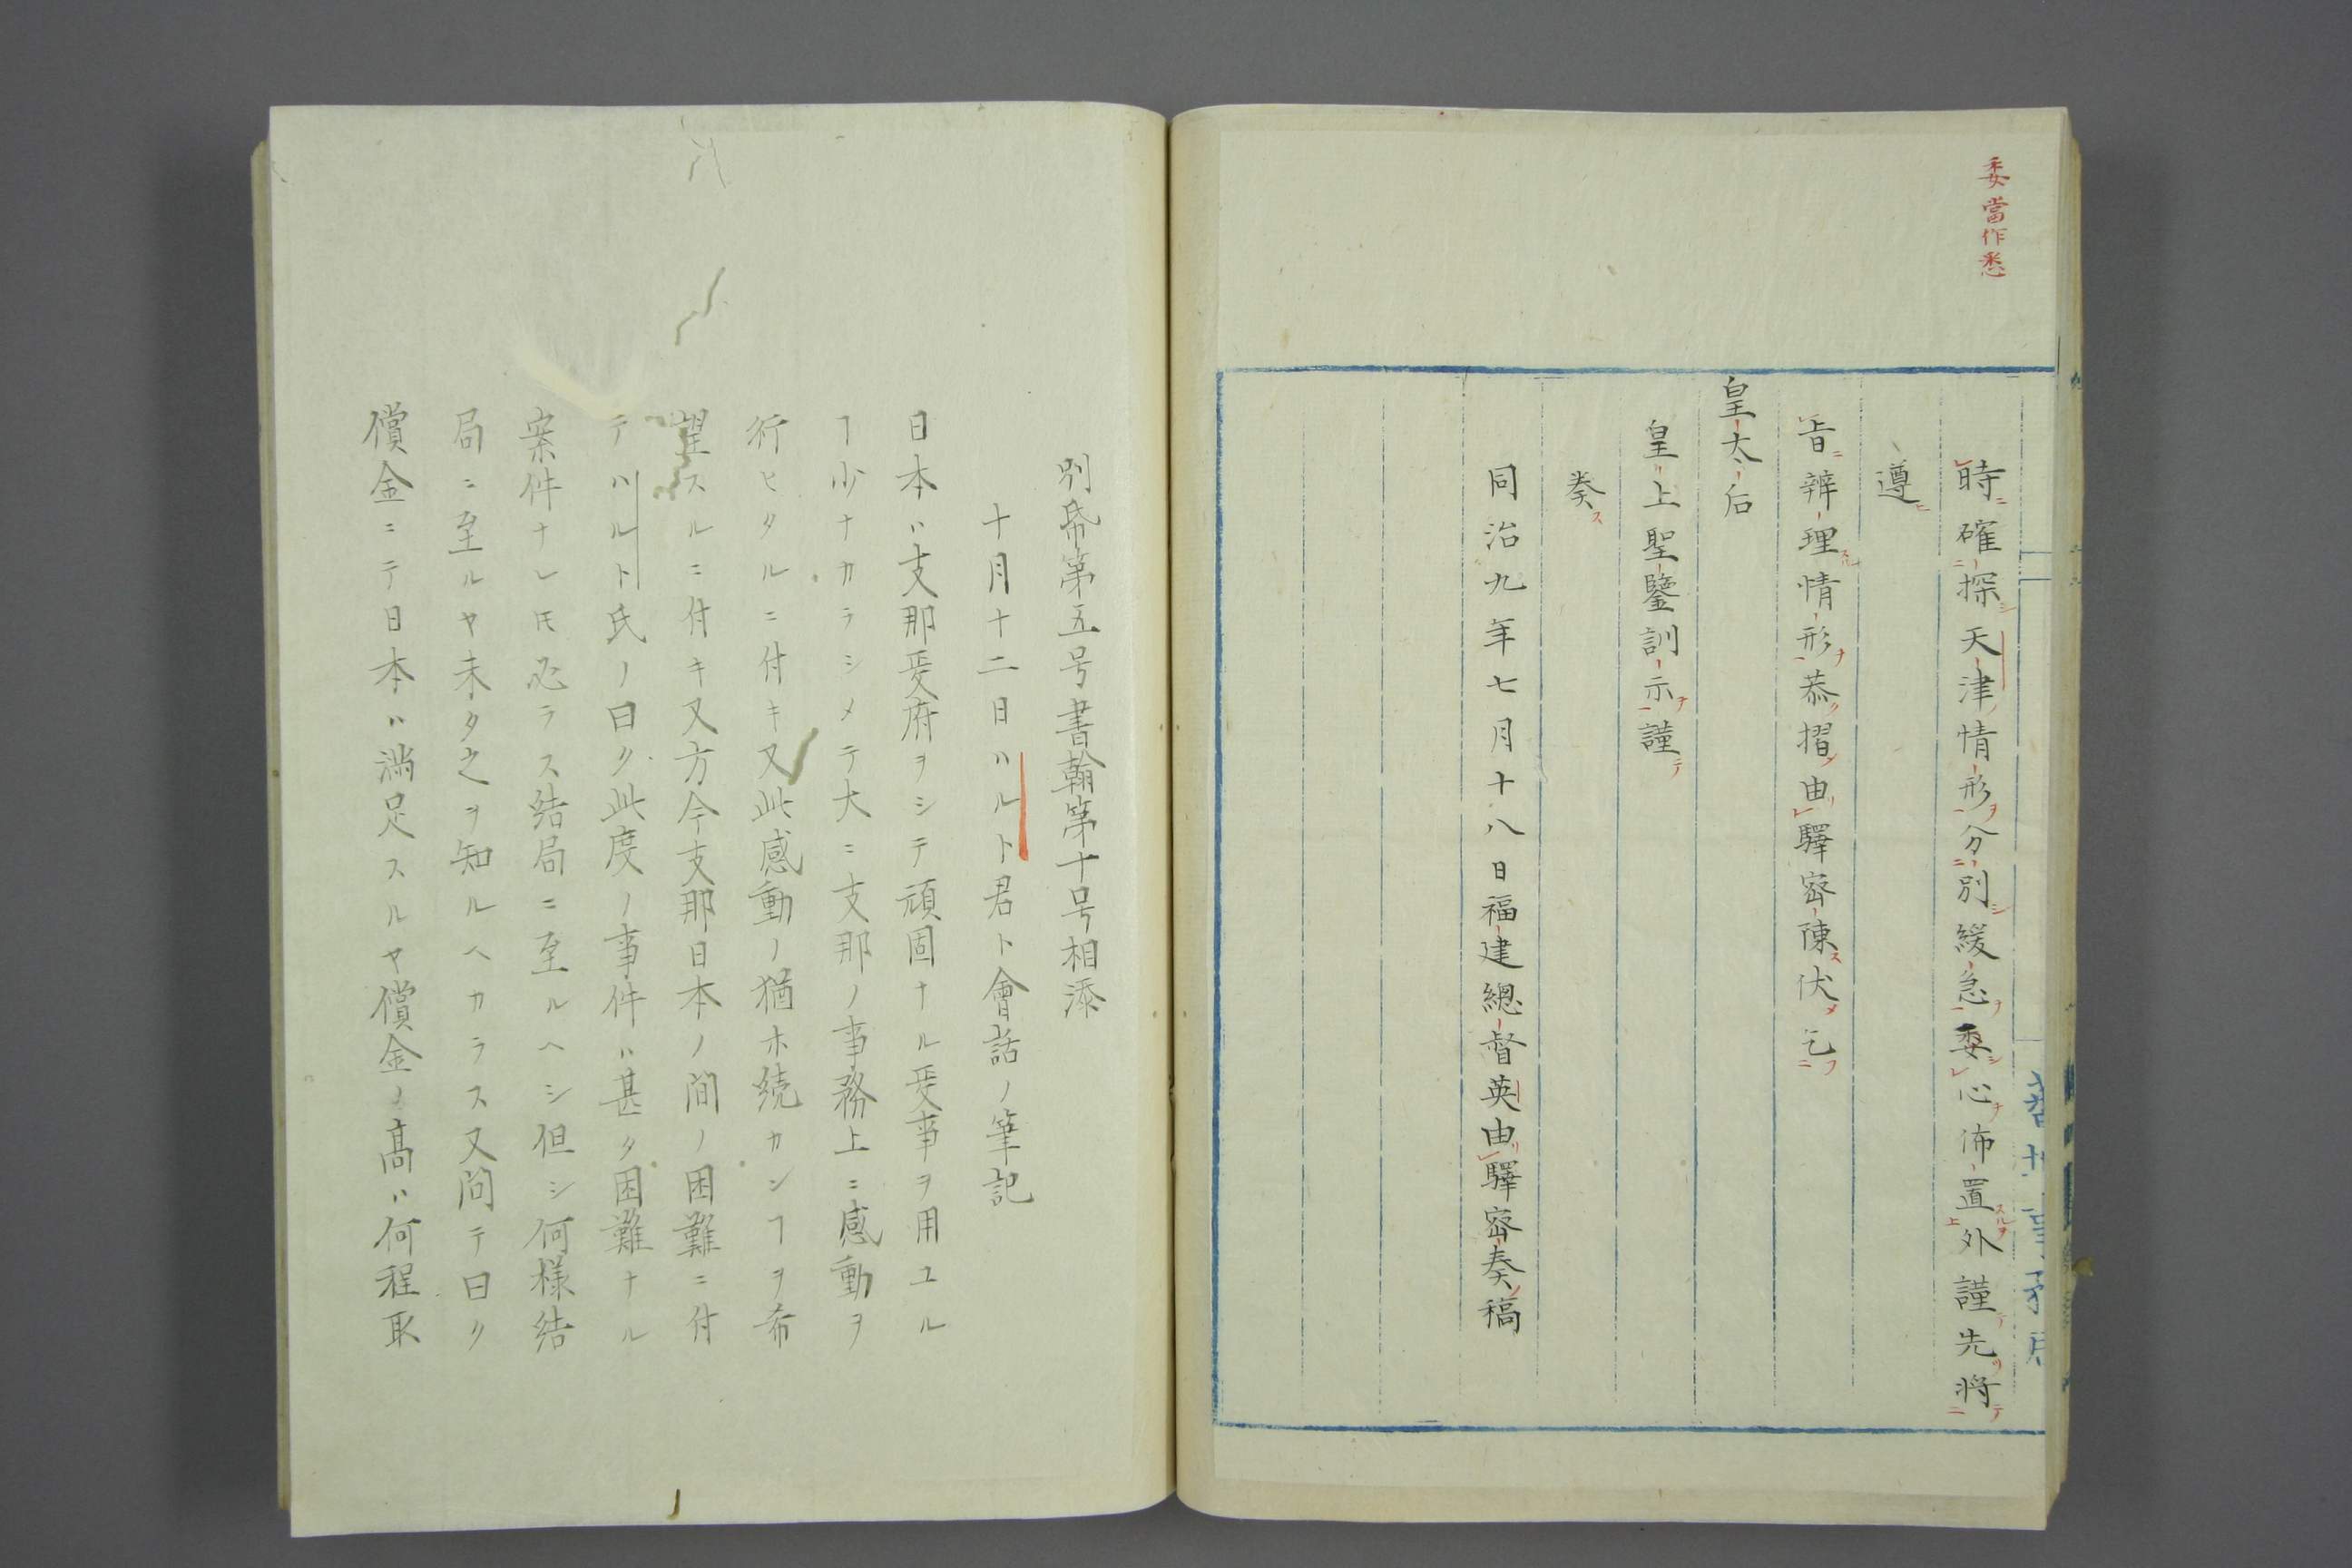 委當作悉
時確探天津情形分別緩急委心佈置外謹先將
遵
旨辦理情形恭摺由驛密陳伏乞
皇太后
皇上聖鑒訓示謹
奏
同治九年七月十八日福建總督英由驛密奏稿
別帋第五号書翰第十号相添
十月十二日ハルト君ト會話ノ筆記
日本ハ支那政府ヲシテ頑固ナル政事ヲ用ユル
ヿ少ナカラシメテ大ニ支那ノ事務上ニ感動ヲ
行ヒタルニ付キ又此感動ノ猶ホ続カンヿヲ希
望スルニ付キ又方今支那日本ノ間ノ困難ニ付
テハルト氏ノ曰ク此度ノ事件ハ甚タ困難ナル
案件ナレ𪜈必ラス結局ニ至ルヘシ但シ何様結
局ニ至ルヤ未タ之ヲ知ルヘカラス又問テ曰ク
償金ニテ日本ハ満足スルヤ償金ノ高ハ何程取